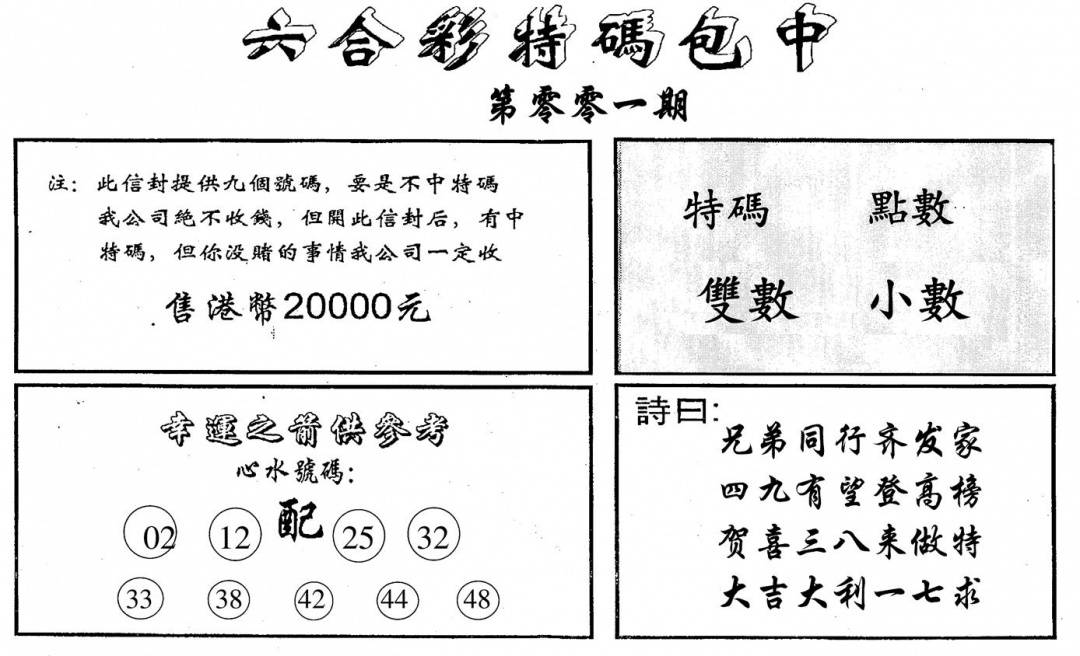 六合彩特碼包中
第零零一期
注：此信封提供九個號碼，要是不中特碼
我公司絕不收錢，但開此信封后，有中
特碼，但你没賭的事情我公司一定收
售港幣20000元
特碼 點數
雙數 小數
幸運之箭供參考
心水號碼：
02 12 配 25 32
33 38 42 44 48
詩曰：
兄弟同行齐发家
四九有望登高榜
贺喜三八来做特
大吉大利一七求